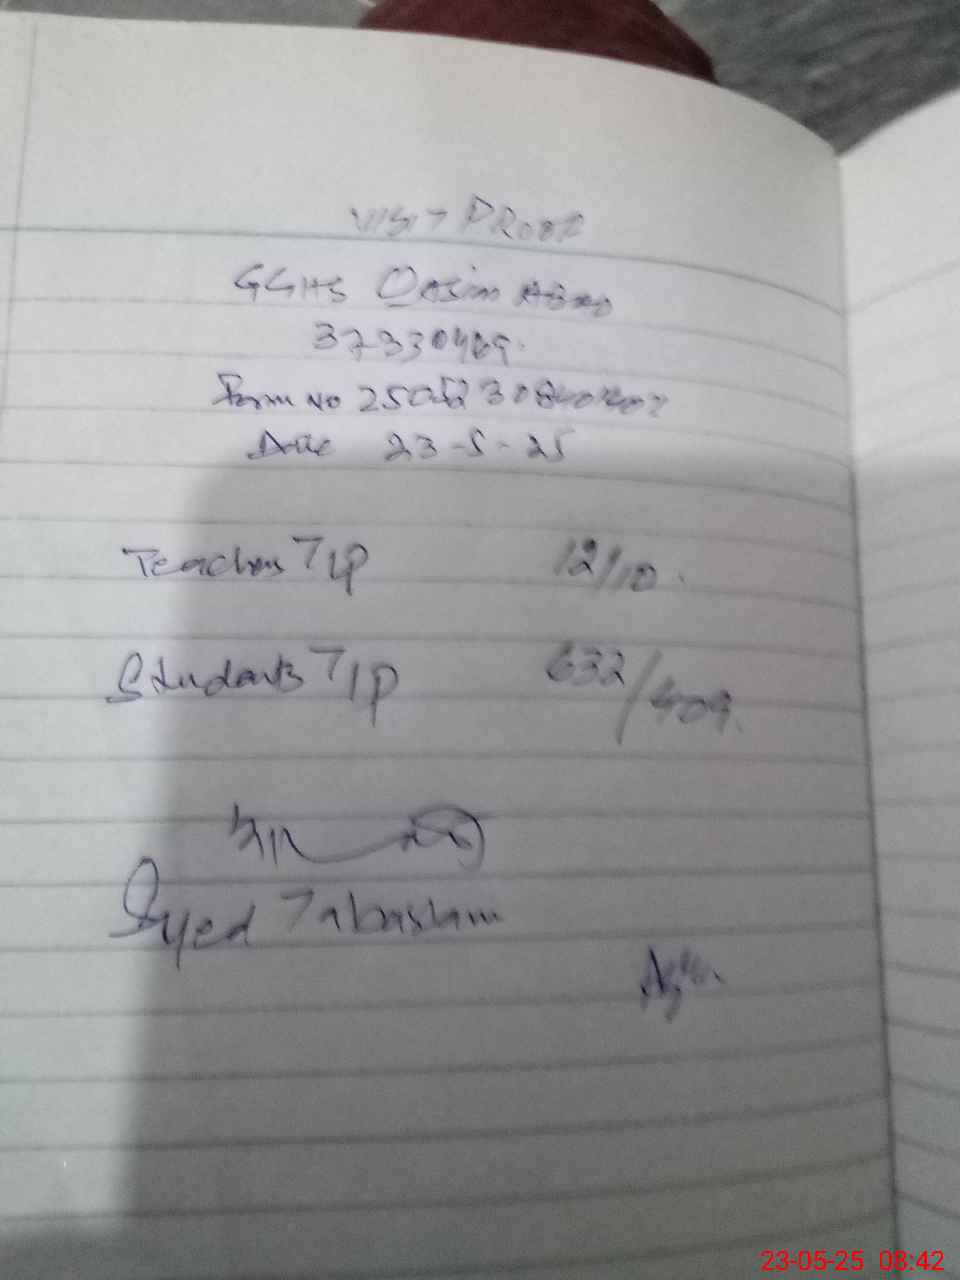 VISIT PROOF
GGHS Qasim Abad
37330469.
Form No
Date 23-5-25
Teachers T/P 12/10.
Students T/P 632/409.
Syed Tabassam
23-05-25 08:42